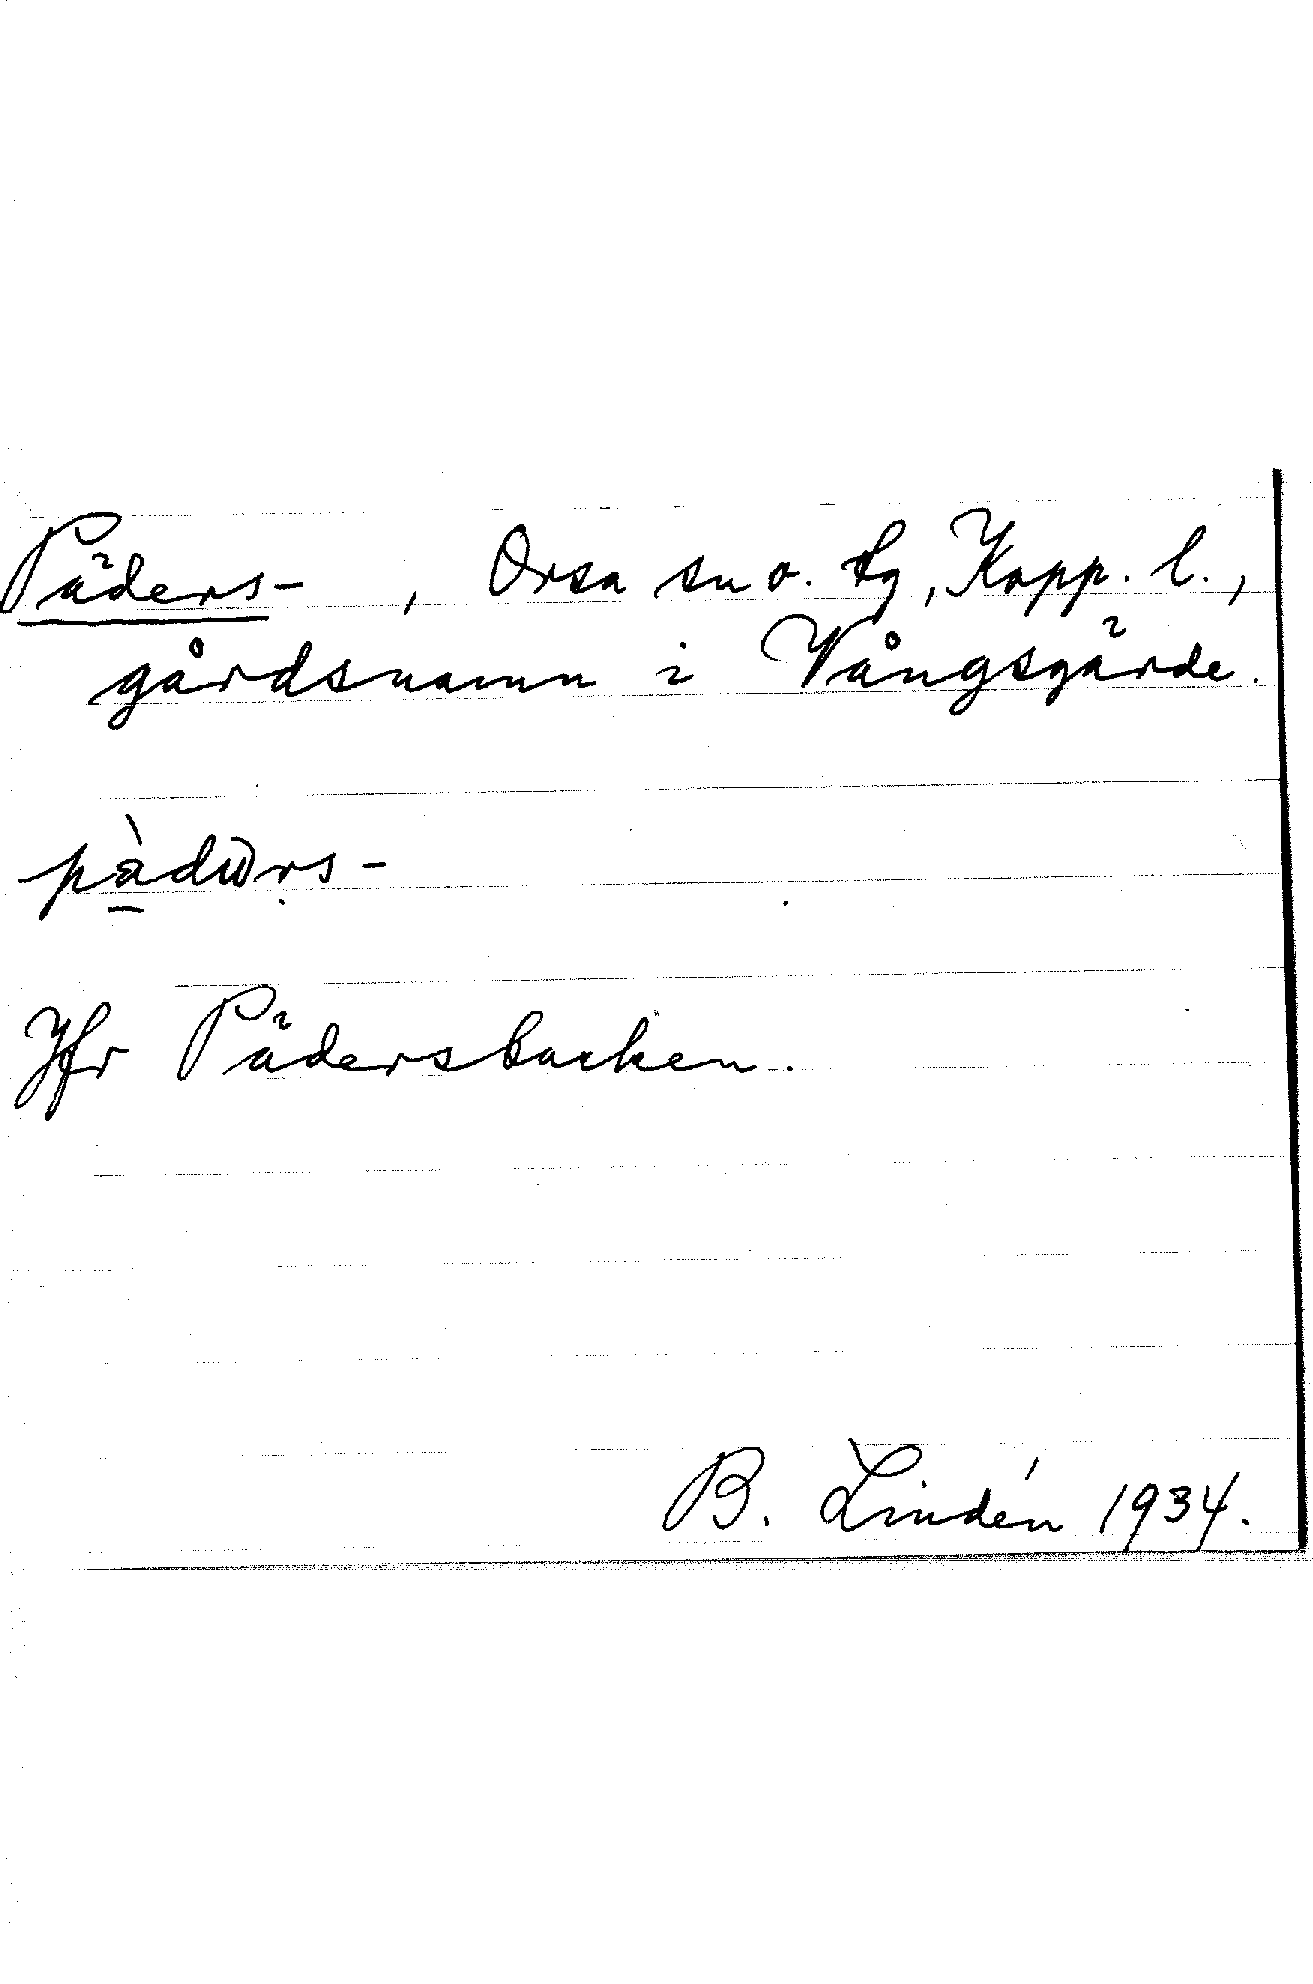 Päders- , Orsa sn o. tg, Kopp. l.,
gårdsnamn i Vångsgärde.
Jfr Pädersbacken.
B. Lindén 1934.